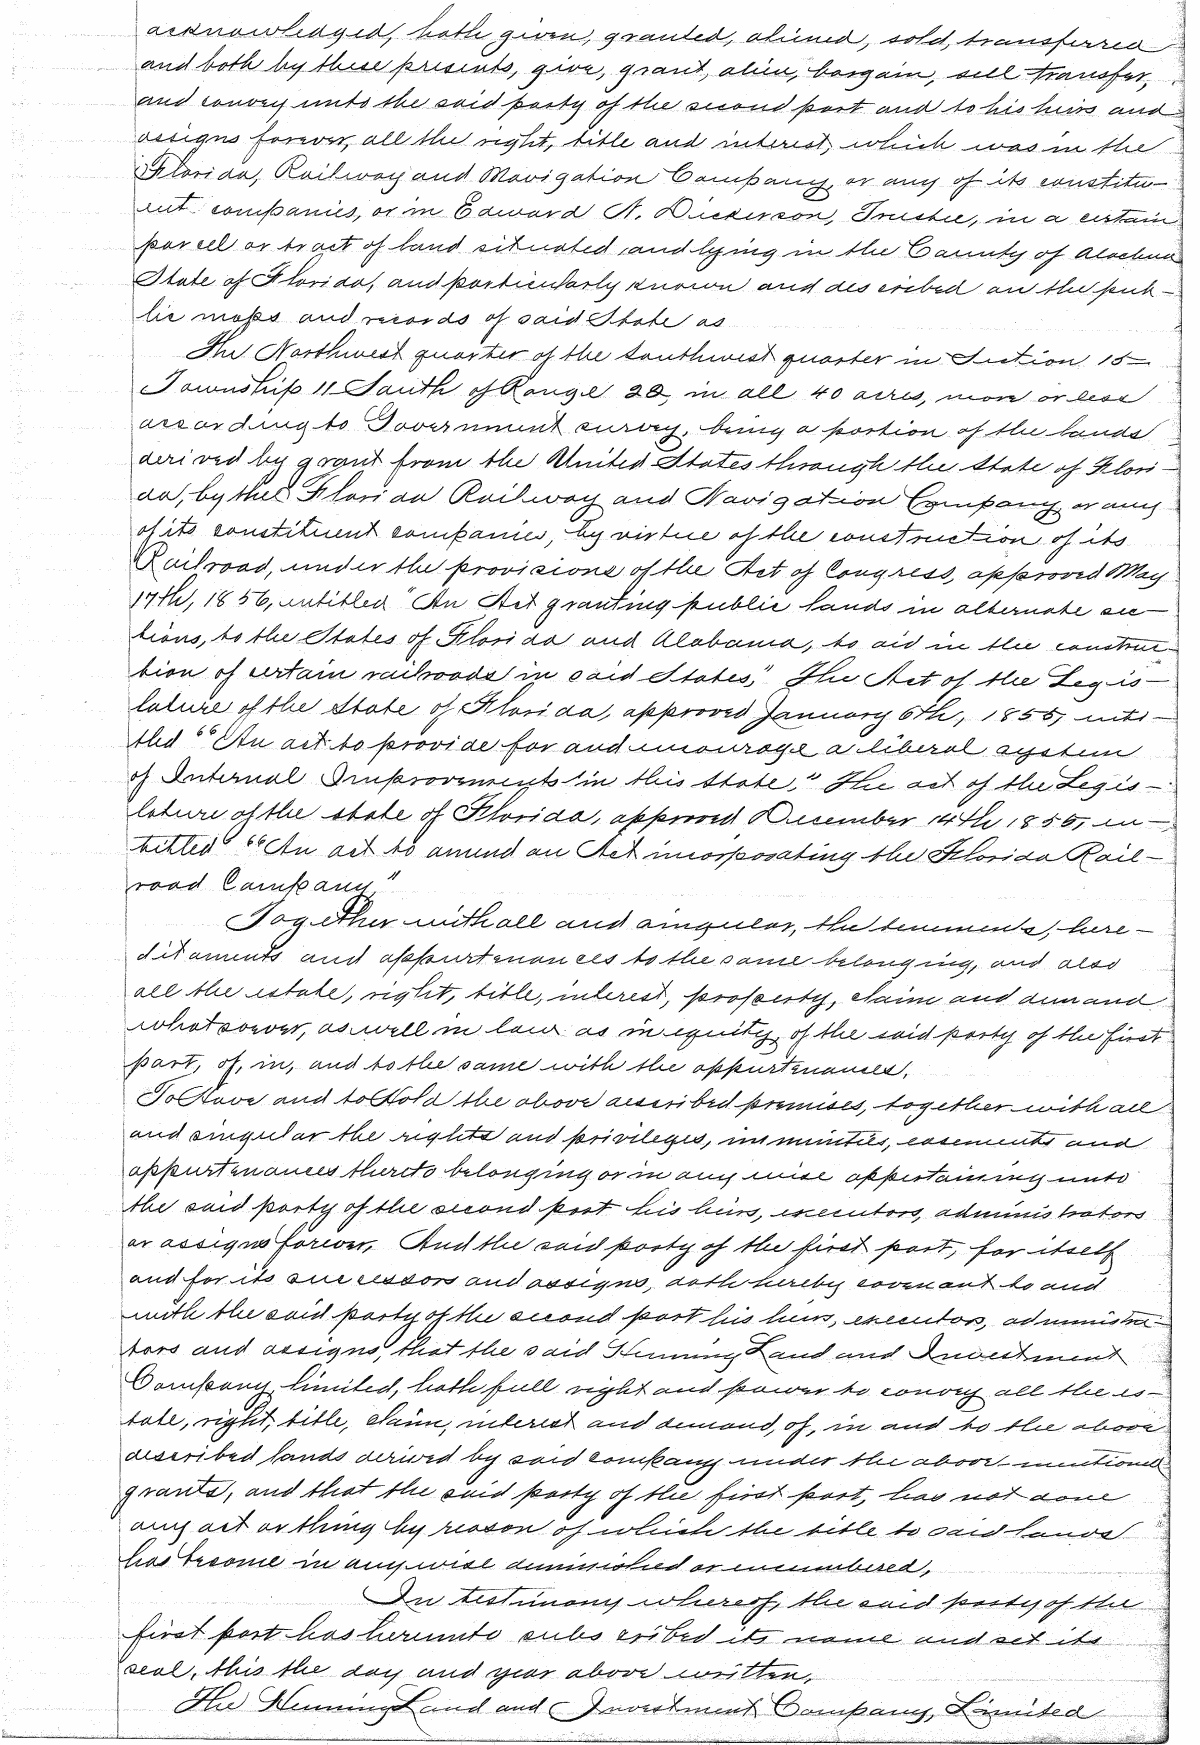 acknowledged, hath given, granted, aliened, sold, transferred
and doth by these presents, give, grant, alien, bargain, sell transfer,
and convey unto the said party of the second part and to his heirs and
assigns forever, all the right, title and interest, which was in the
Florida, Railway and Navigation Company, or any of its constitu-
ent companies, or in Edward N. Dickerson, Trustee, in a certain
parcel or tract of land situated, and lying in the County of Alachua
State of Florida, and particularly known and described on the pub-
lic maps and records of said State as
The Northwest quarter of the Southwest quarter in Section 15
Township 11 South of Range 22, in all 40 acres, more or less
according to Government survey, being a portion of the lands
derived by grant from the United States through the State of Flori-
da, by the Florida Railway and Navigation Company, or any
of its constituent companies, by virtue of the construction of its
Railroad, under the provisions of the Act of Congress, approved May
17th, 1856, entitled "An Act granting public lands in alternate sec-
tions, to the States of Florida and Alabama, to aid in the construc-
tion of certain railroads in said States," The Act of the Legis-
lature of the State of Florida, approved January 6th, 1855, enti-
tled "An act to provide for and encourage a liberal system
of Internal Improvements in this State," The act of the Legis-
lature of the state of Florida, approved December 14th 1855, en-
titled "An act to amend an Act incorporating the Florida Rail-
road Company"
Together with all and singular, the tenements, here-
ditaments and appurtenances to the same belonging, and also
all the estate, right, title, interest, property, claim and demand
whatsoever, as well in law as in equity, of the said party of the first
part, of, in, and to the same with the appurtenances.
To Have and to Hold the above described premises, together with all
and singular the rights and privileges, immunities, easements and
appurtenances thereto belonging or in any wise appertaining unto
the said party of the second part his heirs, executors, administrators
or assigns forever. And the said party of the first part, for itself
and for its successors and assigns, doth hereby covenant to and
with the said party of the second part his heirs, executors, administra-
tors and assigns, that the said Henning Land and Investment
Company, limited, hath full right and power to convey all the es-
tate, right, title, claim, interest and demand, of, in and to the above
described lands derived by said company under the above-mentioned
grants, and that the said party of the first part, has not done
any act or thing by reason of which the title to said lands
has become in any wise diminished or encumbered.
In testimony whereof, the said party of the
first part has hereunto subscribed its name and set its
seal, this the day and year above written.
The Henning Land and Investment Company, Limited